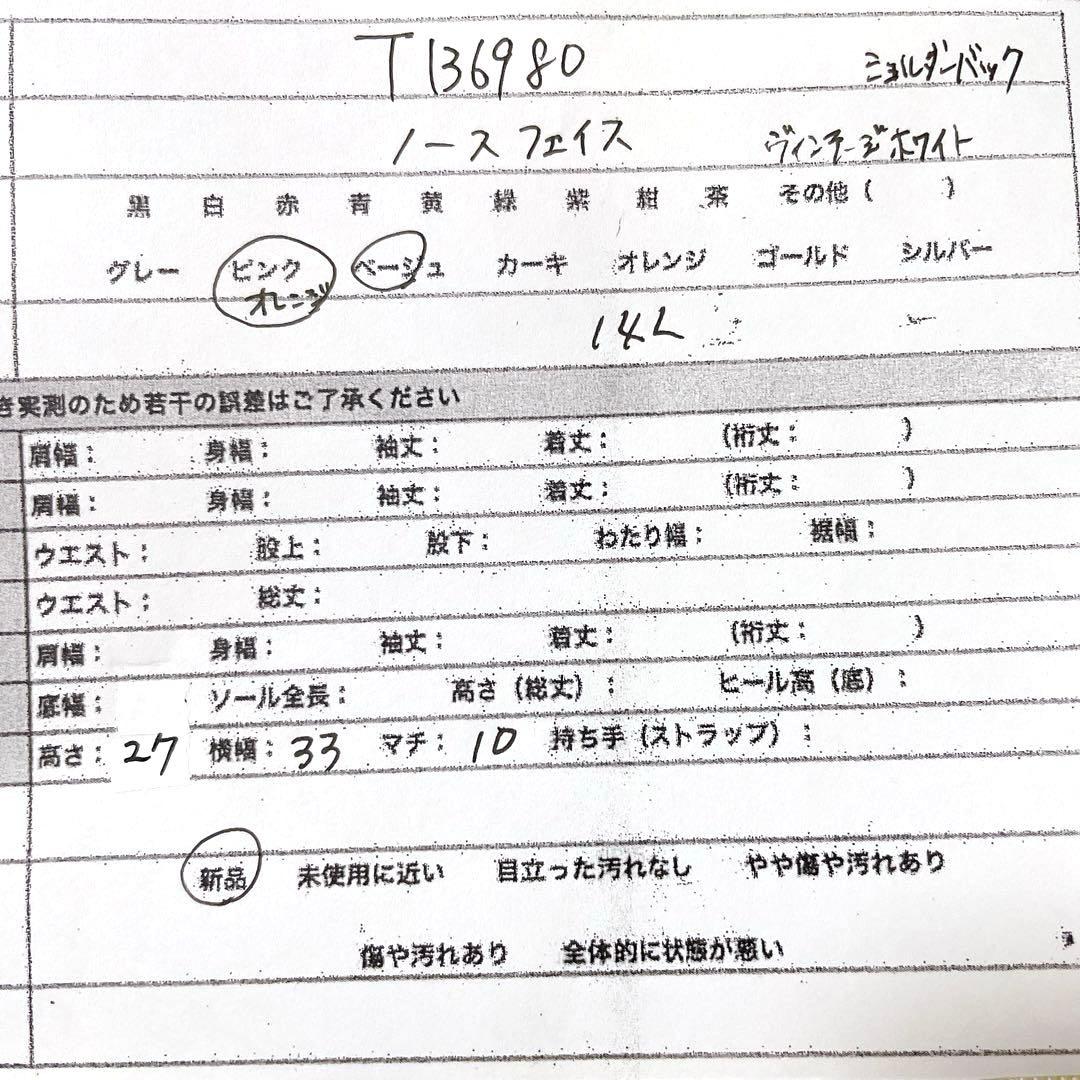 T136980 ショルダーバック
ノースフェイス ヴィンテージホワイト
黒 白 赤 青 黄 緑 紫 紺 茶 その他( )
グレー ピンク ベージュ カーキ オレンジ ゴールド シルバー
オレンジ
14L
き実測のため若干の誤差はご了承ください
肩幅: 身幅: 袖丈: 着丈: (裄丈: )
肩幅: 身幅: 袖丈: 着丈: (裄丈: )
ウエスト: 股上: 股下: わたり幅: 裾幅:
ウエスト: 総丈:
肩幅: 身幅: 袖丈: 着丈: (裄丈: )
底幅: ソール全長: 高さ(総丈): ヒール高(底):
高さ: 27 横幅: 33 マチ: 10 持ち手(ストラップ):
新品 未使用に近い 目立った汚れなし やや傷や汚れあり
傷や汚れあり 全体的に状態が悪い